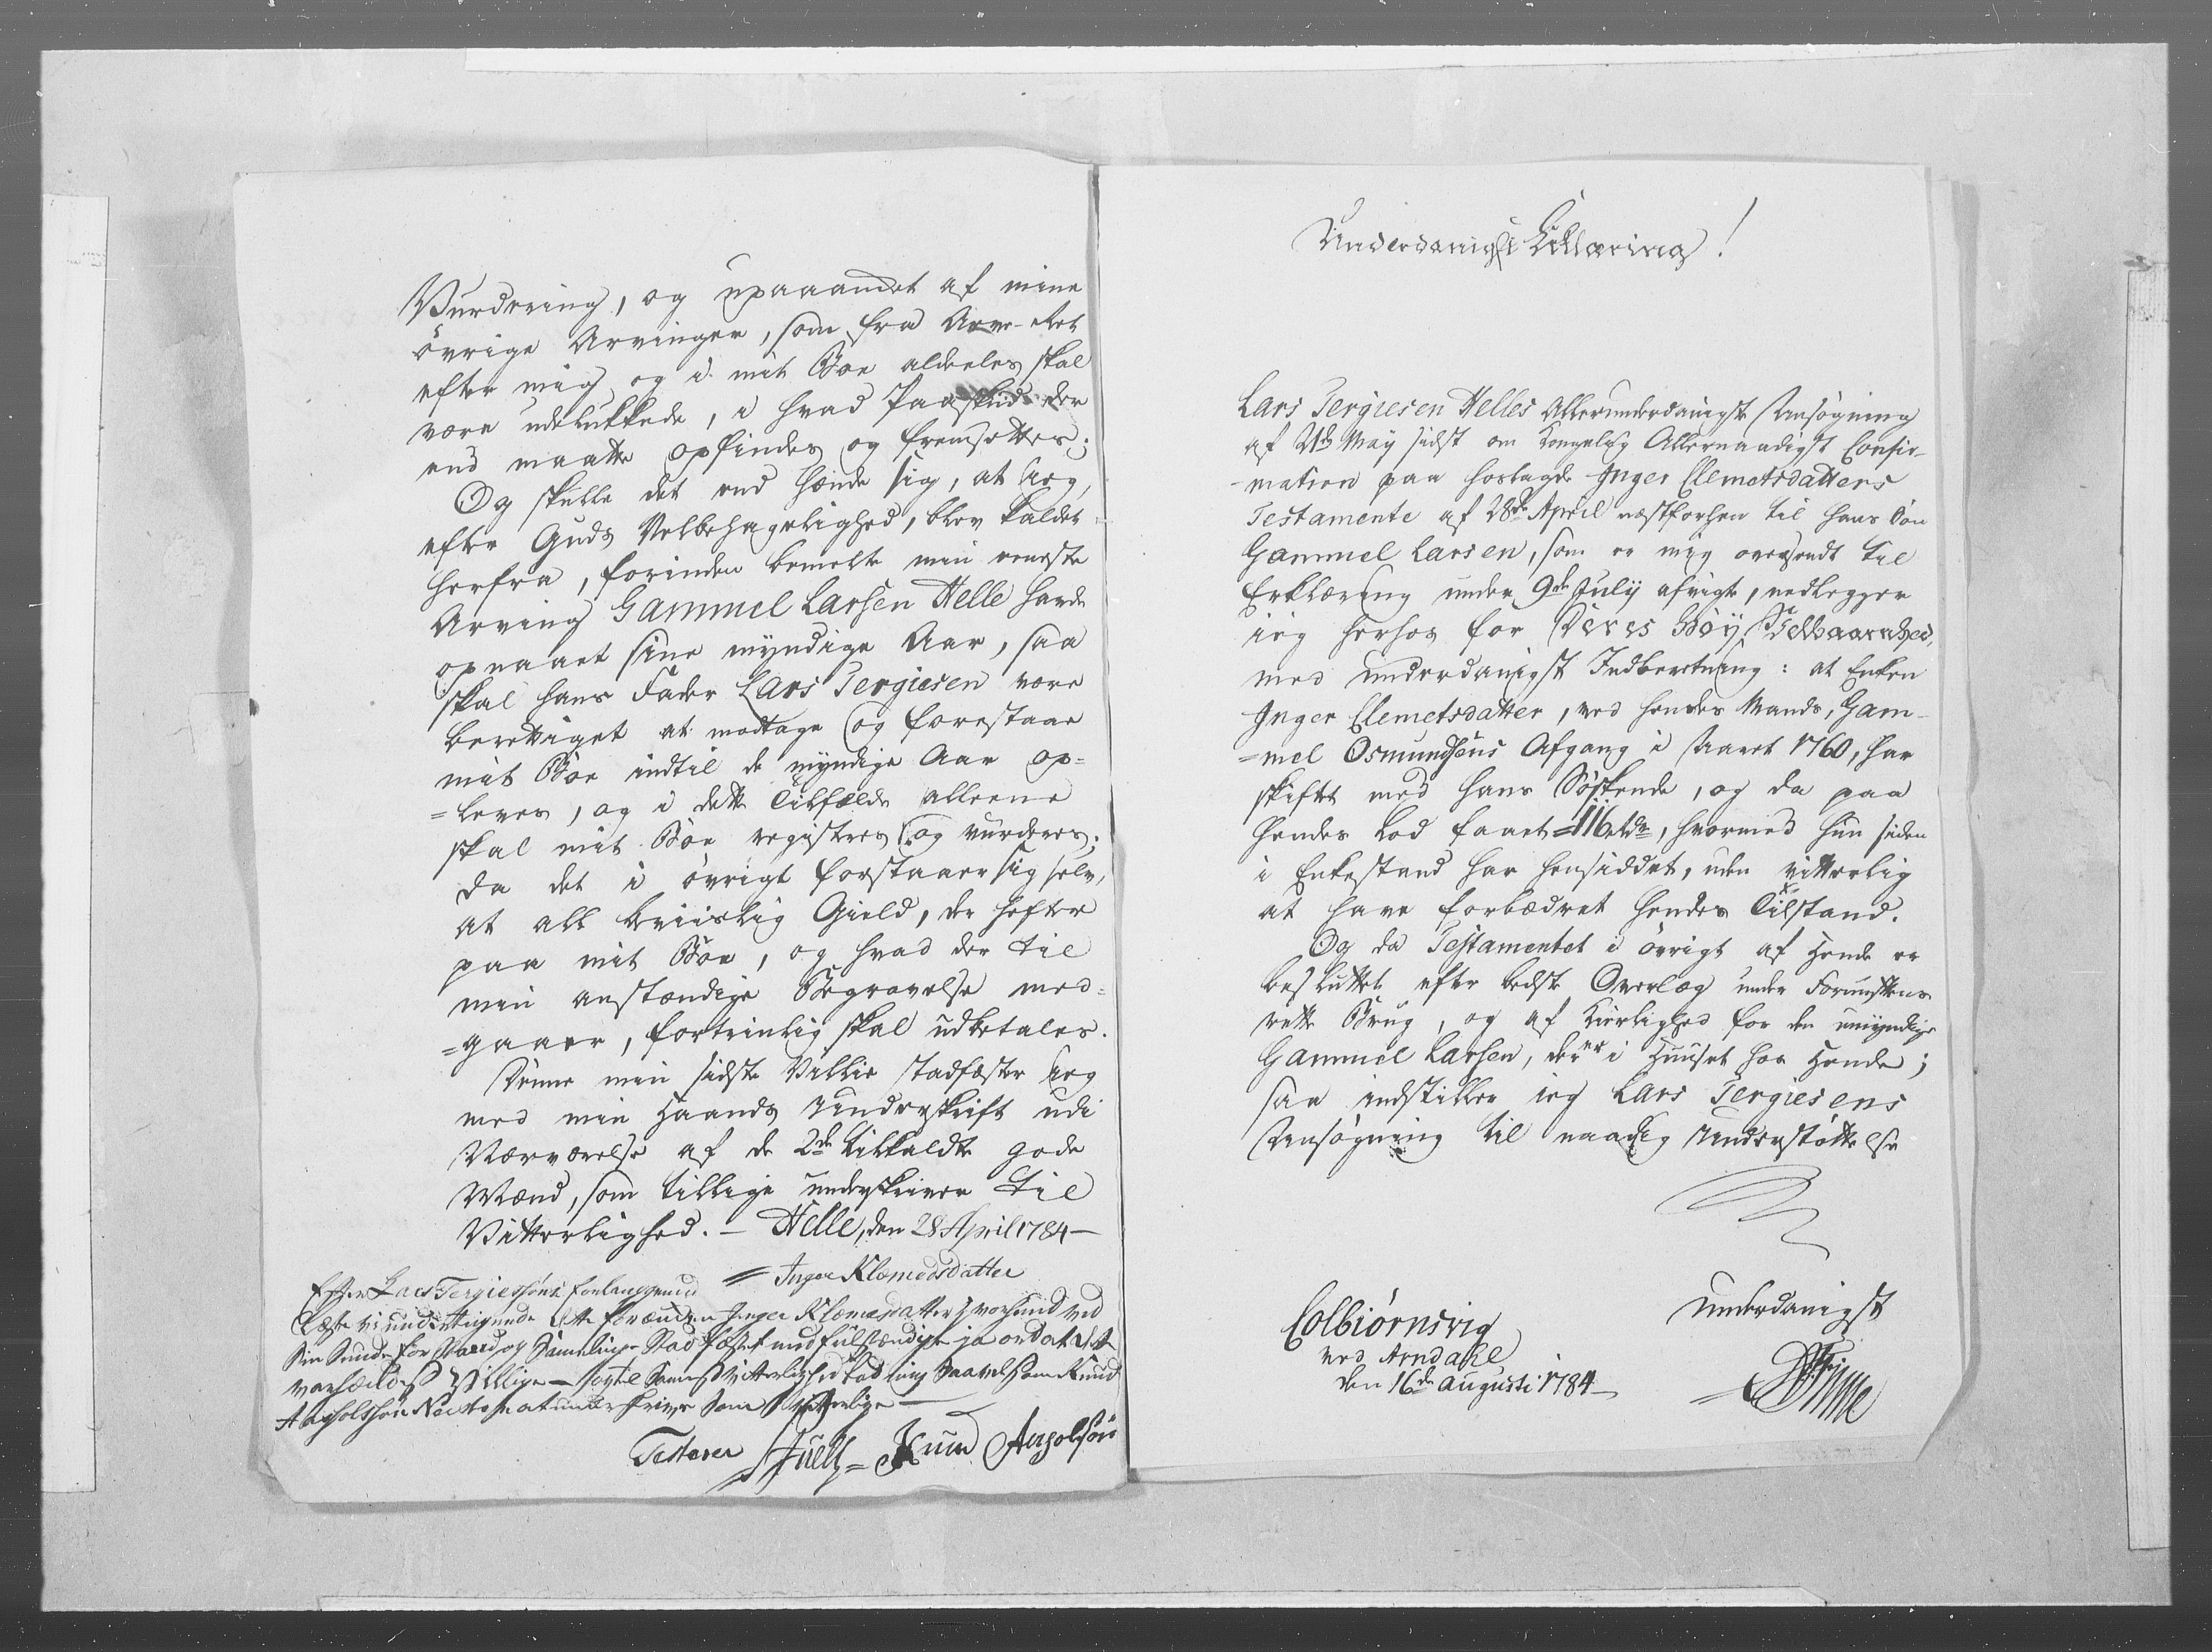 Vurdering, og upaaandet af mine
övrige Arvinger, som fra Arve-Ret
efter mig og i mit Boe aldeeles skal
være udelukkede, i hvad Paaskud der
end maatte opfindes og fremsættes;
Og skulle det end hænde sig, at Jeg,
efter Guds Velbehagelighed, blev kaldet
herfra, forinden bemelte min eeneste
Arving Gammel Larsen Helle havde
opnaaet sine myndige Aar, saa
skal hans Fader Lars Tergiesen være
berettiget at modtage og forestaae
mit Boe indtil de myndige Aar op=
=leves, og i dette Tilfælde alleene
skal mit Boe registres og vurderes;
da det i övrigt forstaaer sig selv,
at all beviislig Gield, der hefter
paa mit Boe, og hvad der til
min anstændige Begravelse med=
=gaaer, fortrinlig skal udbetales.
Denne min sidste Villie stadfæster Jeg
med min Haands Underskrift udi
Nærværelse af de 2de tilkaldte gode
Mænd, som tillige underskriver til
Vitterlighed. – Helle, den 28 April 1784 –
= Inger Klemedsdatter
Efter Lars Tergiessöns forlangende
Læste vi undertegnede dette for Encken Inger Klemedsdatter hvorhund ved
Sin Sunde Forstand og Samling Stadfæstet med fulstændige ja ord at det
var hendes Villige – og til Samme Vitterlighed lod mig Saavelsom Knud
Aasholfsön underskrive Som Vitterlige –
Testerer Juell = Knud Aasolfsön
Underdanigst Erklæring!
Lars Tergiesen Helles Allerunderdanigste Ansögning
af 21de May sidst om Kongelig Allernaadigst Confir-
-mation paa hoslagde Inger Clemetsdatters
Testamente af 28de April næstforhen til hans Sön
Gammel Larsen, som er mig oversendt til
Erklæring under 9de July afvigte, nedlegger
ieg herhos for Deres Höy Velbaarenhed,
med underdanigst Indberetning: at Enken
Inger Clemetsdatter, ved hendes Mands, Gam-
=mel Osmundsens Afgang i Aaret 1760, har
skiftet med hans Söskende, og da paa
hendes Lod faaet = 116 rdr, hvormed hun siden
i Enkestand har hensiddet, uden vitterlig
at have forbædret hendes Tilstand.
Og da Testamentet i övrigt af Hende er
besluttet efter bedste Overlæg under Fornuftens
rette Brug, og af Kierlighed for den umyndige
Gammel Larsen, der er i Huuset hos Hende;
saa indstiller ieg Lars Tergiesens
Ansögning til naadig Understöttelse
Colbiörnsvig
ved Arndahl
den 16de Augusti 1784 –
Underdanigst